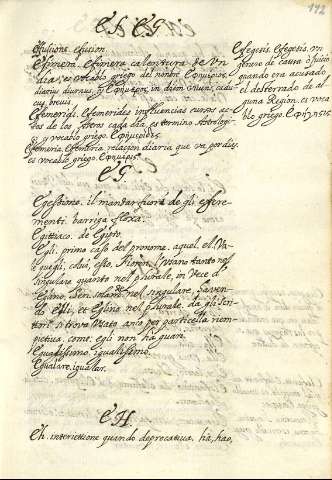 192
EF EG
Effusione. efusion.
Efimera. Efimera calentura de Vn
dia, es vocablo griego del nonbre εφημερος,
diarius diurnus, y εφημερον, in diem viuus, cadu-
cus, breuis.
Efemeridi. Efemerides influencias cursos ac-
tos de los Astros cada dia, es termino Astrologi-
co y vocablo griego. εφημεριδες.
Efemeria. Efemeria relacion diaria que va por dias
es vocablo griego. εφημερις.
Efegesis Efegesis, vn
genero de causa o juicio
quando era acusado
el desterrado de al
guna Region. es voca-
blo griego. εφηγησις.
EG.
Egestione. il mandar fuora de gli escre-
menti.
Egittiaco. de Egipto.
Egli, primo caso del pronome, aquel, el. Va-
le quegli, colui, esso. Fioren. l'usano tanto nel
singulare quanto nel plurale, in vece d
Eglino. Ben. solamente nel singulare, Saven-
do Elli, et Eglino nel plurale, da gli scri-
ttori si trova usato anco per particella riem-
pietiva, come, egli non ha guari.
Egualissimo. igualissimo.
Egualare. igualar.
EH.
Eh. interiettione quando deprecatiua. ha, hao,